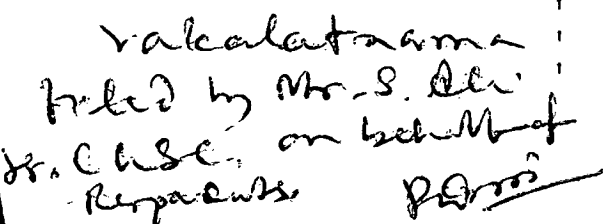 Vakalatnama
filed by Mr. S. Ali
Sr. CGSC. on behalf of
Respondents.